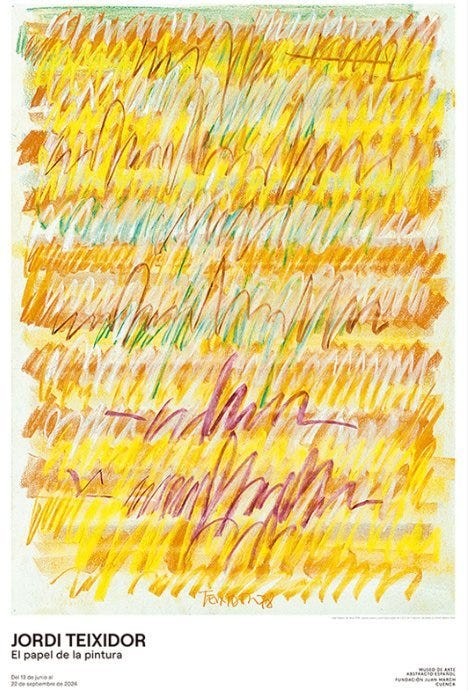 Teixidor 78
JORDI TEIXIDOR
El papel de la pintura
Del 13 de junio al
22 de septiembre de 2024
MUSEO DE ARTE
ABSTRACTO ESPAÑOL
FUNDACIÓN JUAN MARCH
CUENCA